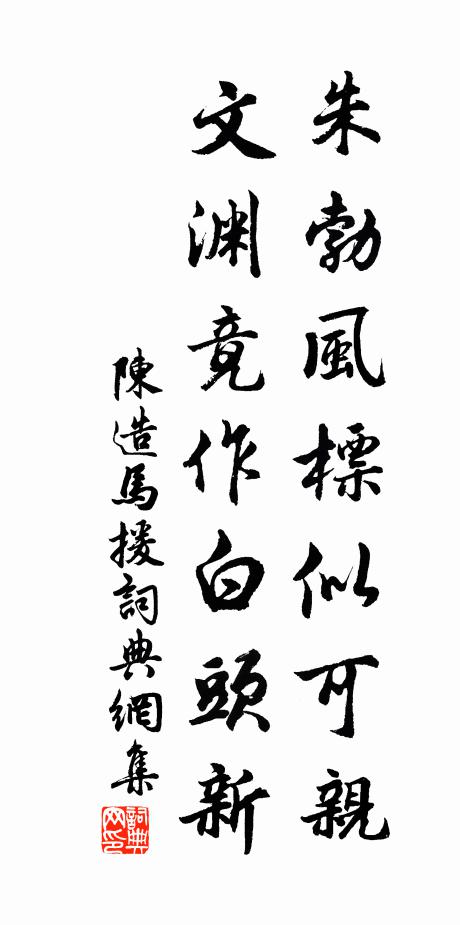 朱勃風標似可親
文渊竟作白頭新
陳造馬援詞典網集
詞典
网印